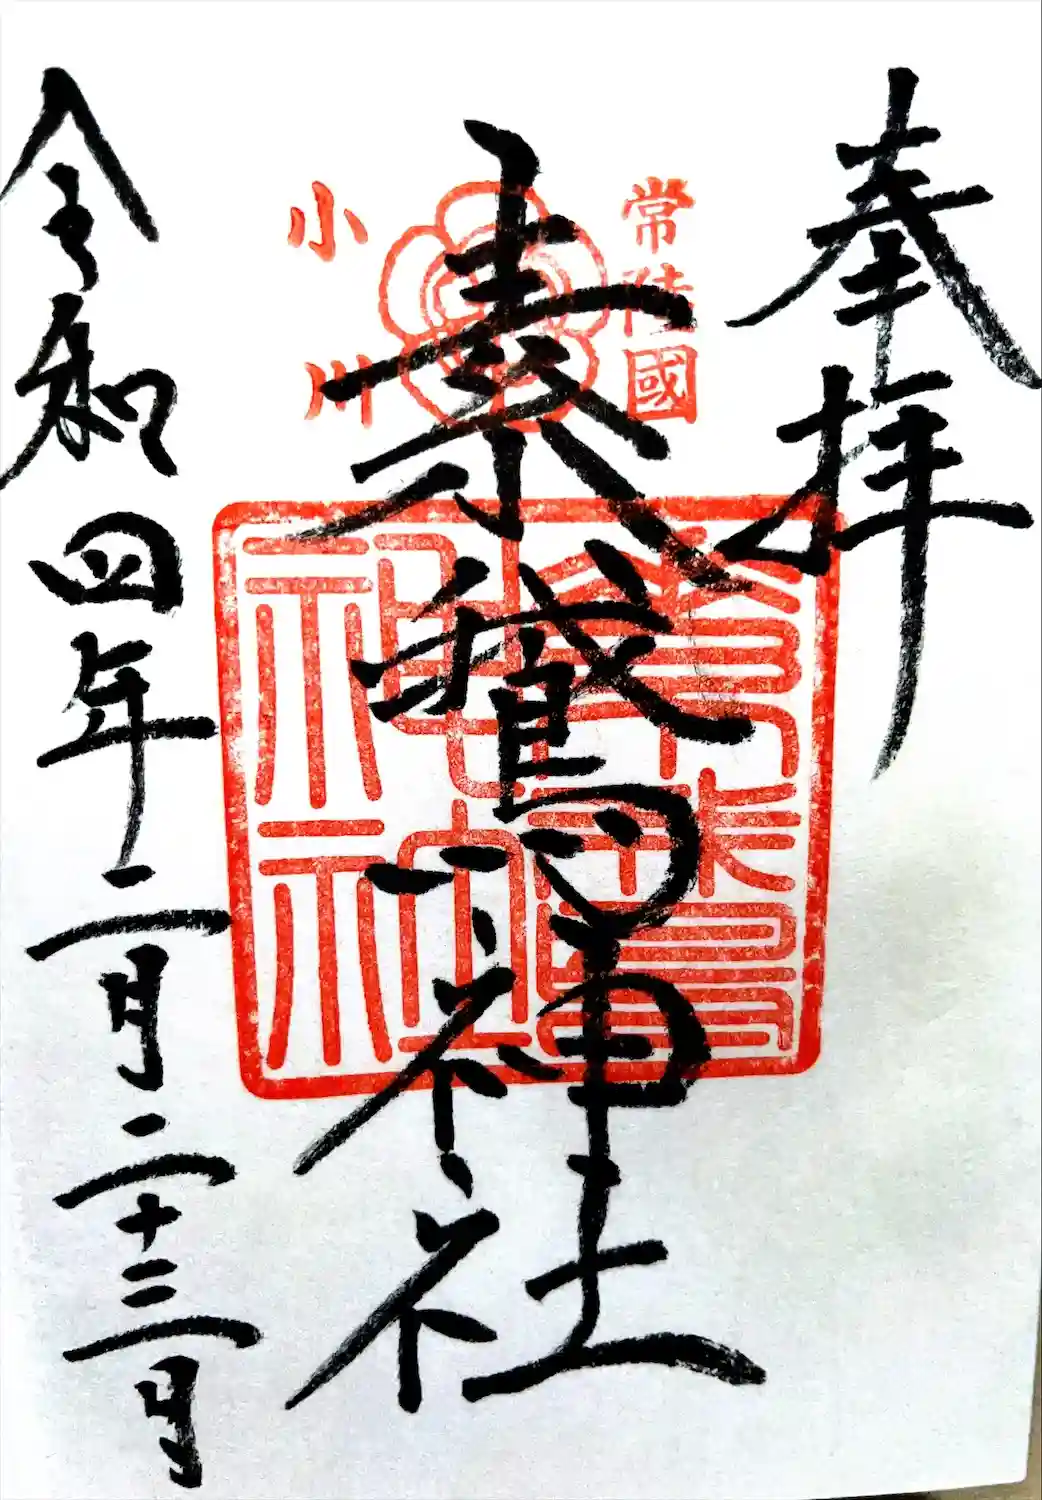 奉拝
常陸國
素鵞神社
小川
素鵞神社
令和四年二月二十三日